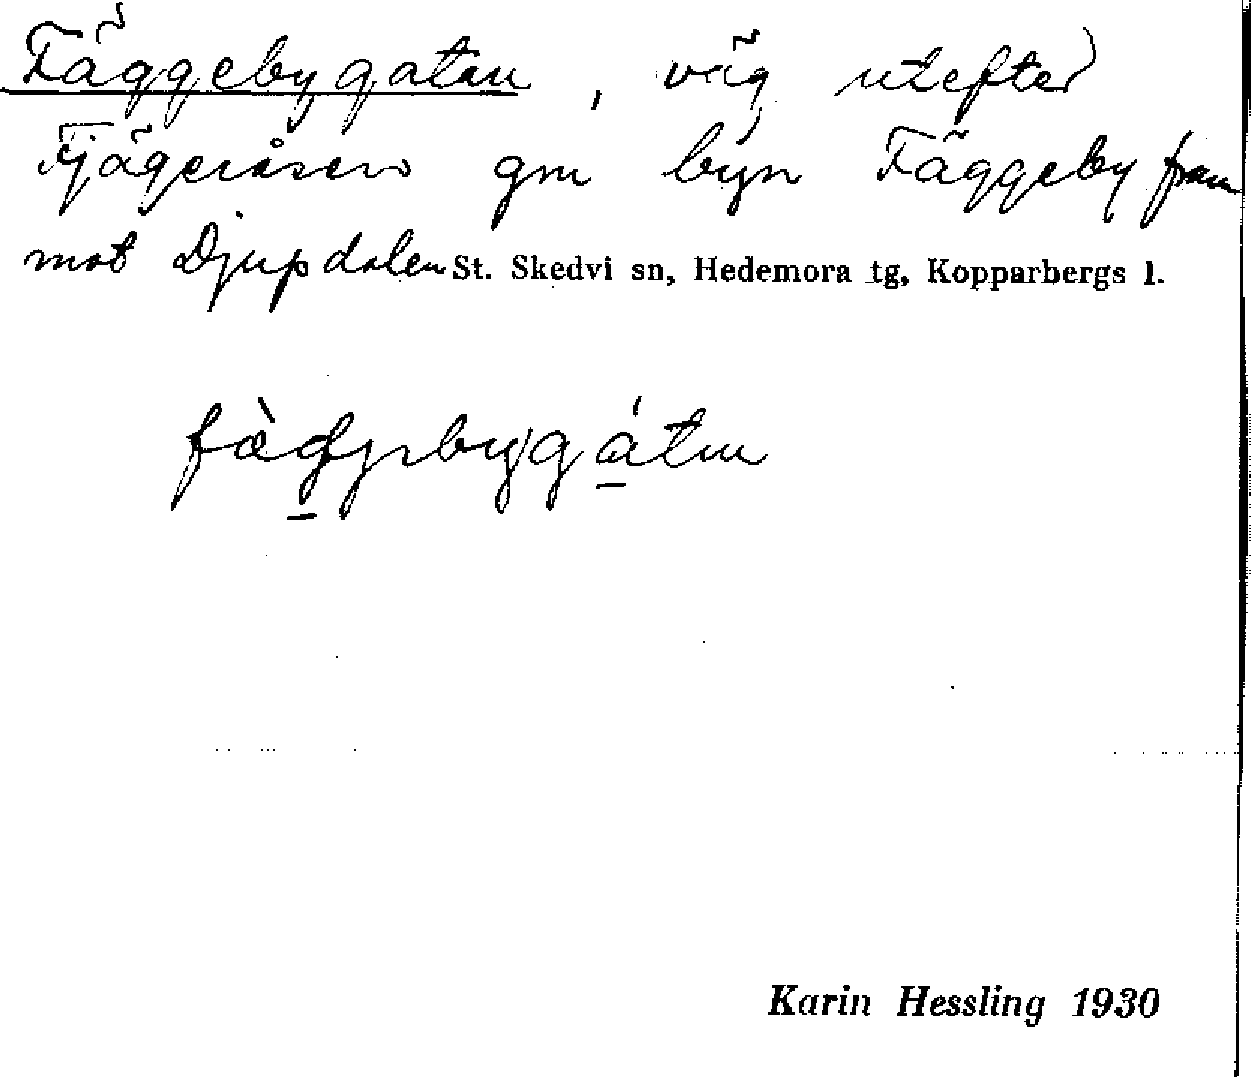 Fäggebygatan, väg utefter
Fjägeråsen gm byn Fäggeby fram
mot Djupdalen St. Skedvi sn, Hedemora tg, Kopparbergs l.
Karin Hessling 1930